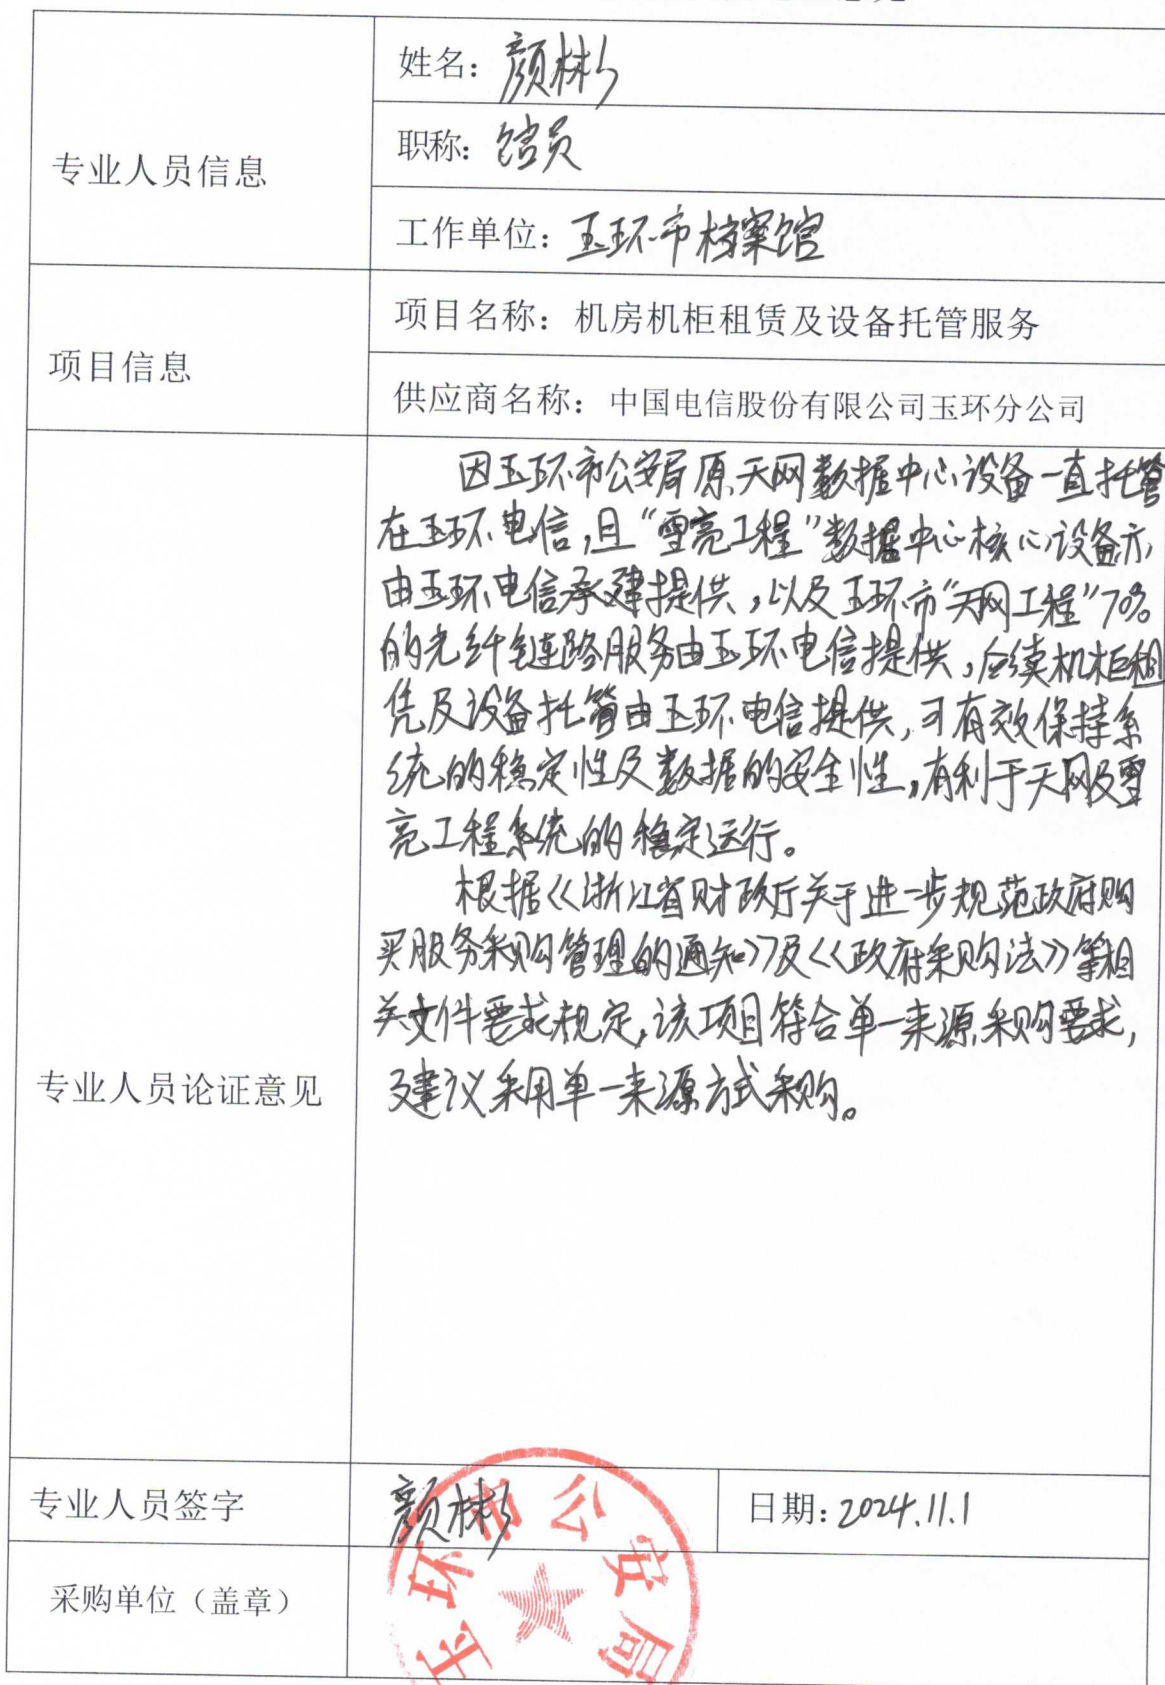 专业人员信息
姓名：颜彬
职称：馆员
工作单位：玉环市档案馆
项目信息
项目名称：机房机柜租赁及设备托管服务
供应商名称：中国电信股份有限公司玉环分公司
专业人员论证意见
因玉环市公安局原天网数据中心设备一直托管
在玉环电信,且“雪亮工程”数据中心核心设备亦
由玉环电信承建提供,以及玉环市“天网工程”70%
的光纤链路服务由玉环电信提供,后续机柜租
凭及设备托管由玉环电信提供,可有效保持系
统的稳定性及数据的安全性,有利于天网及雪
亮工程系统的稳定运行。
根据《浙江省财政厅关于进一步规范政府购
买服务采购管理的通知》及《政府采购法》等相
关文件要求规定,该项目符合单一来源采购要求,
建议采用单一来源方式采购。
专业人员签字
颜彬
日期：2024.11.1
采购单位（盖章）
玉环市公安局